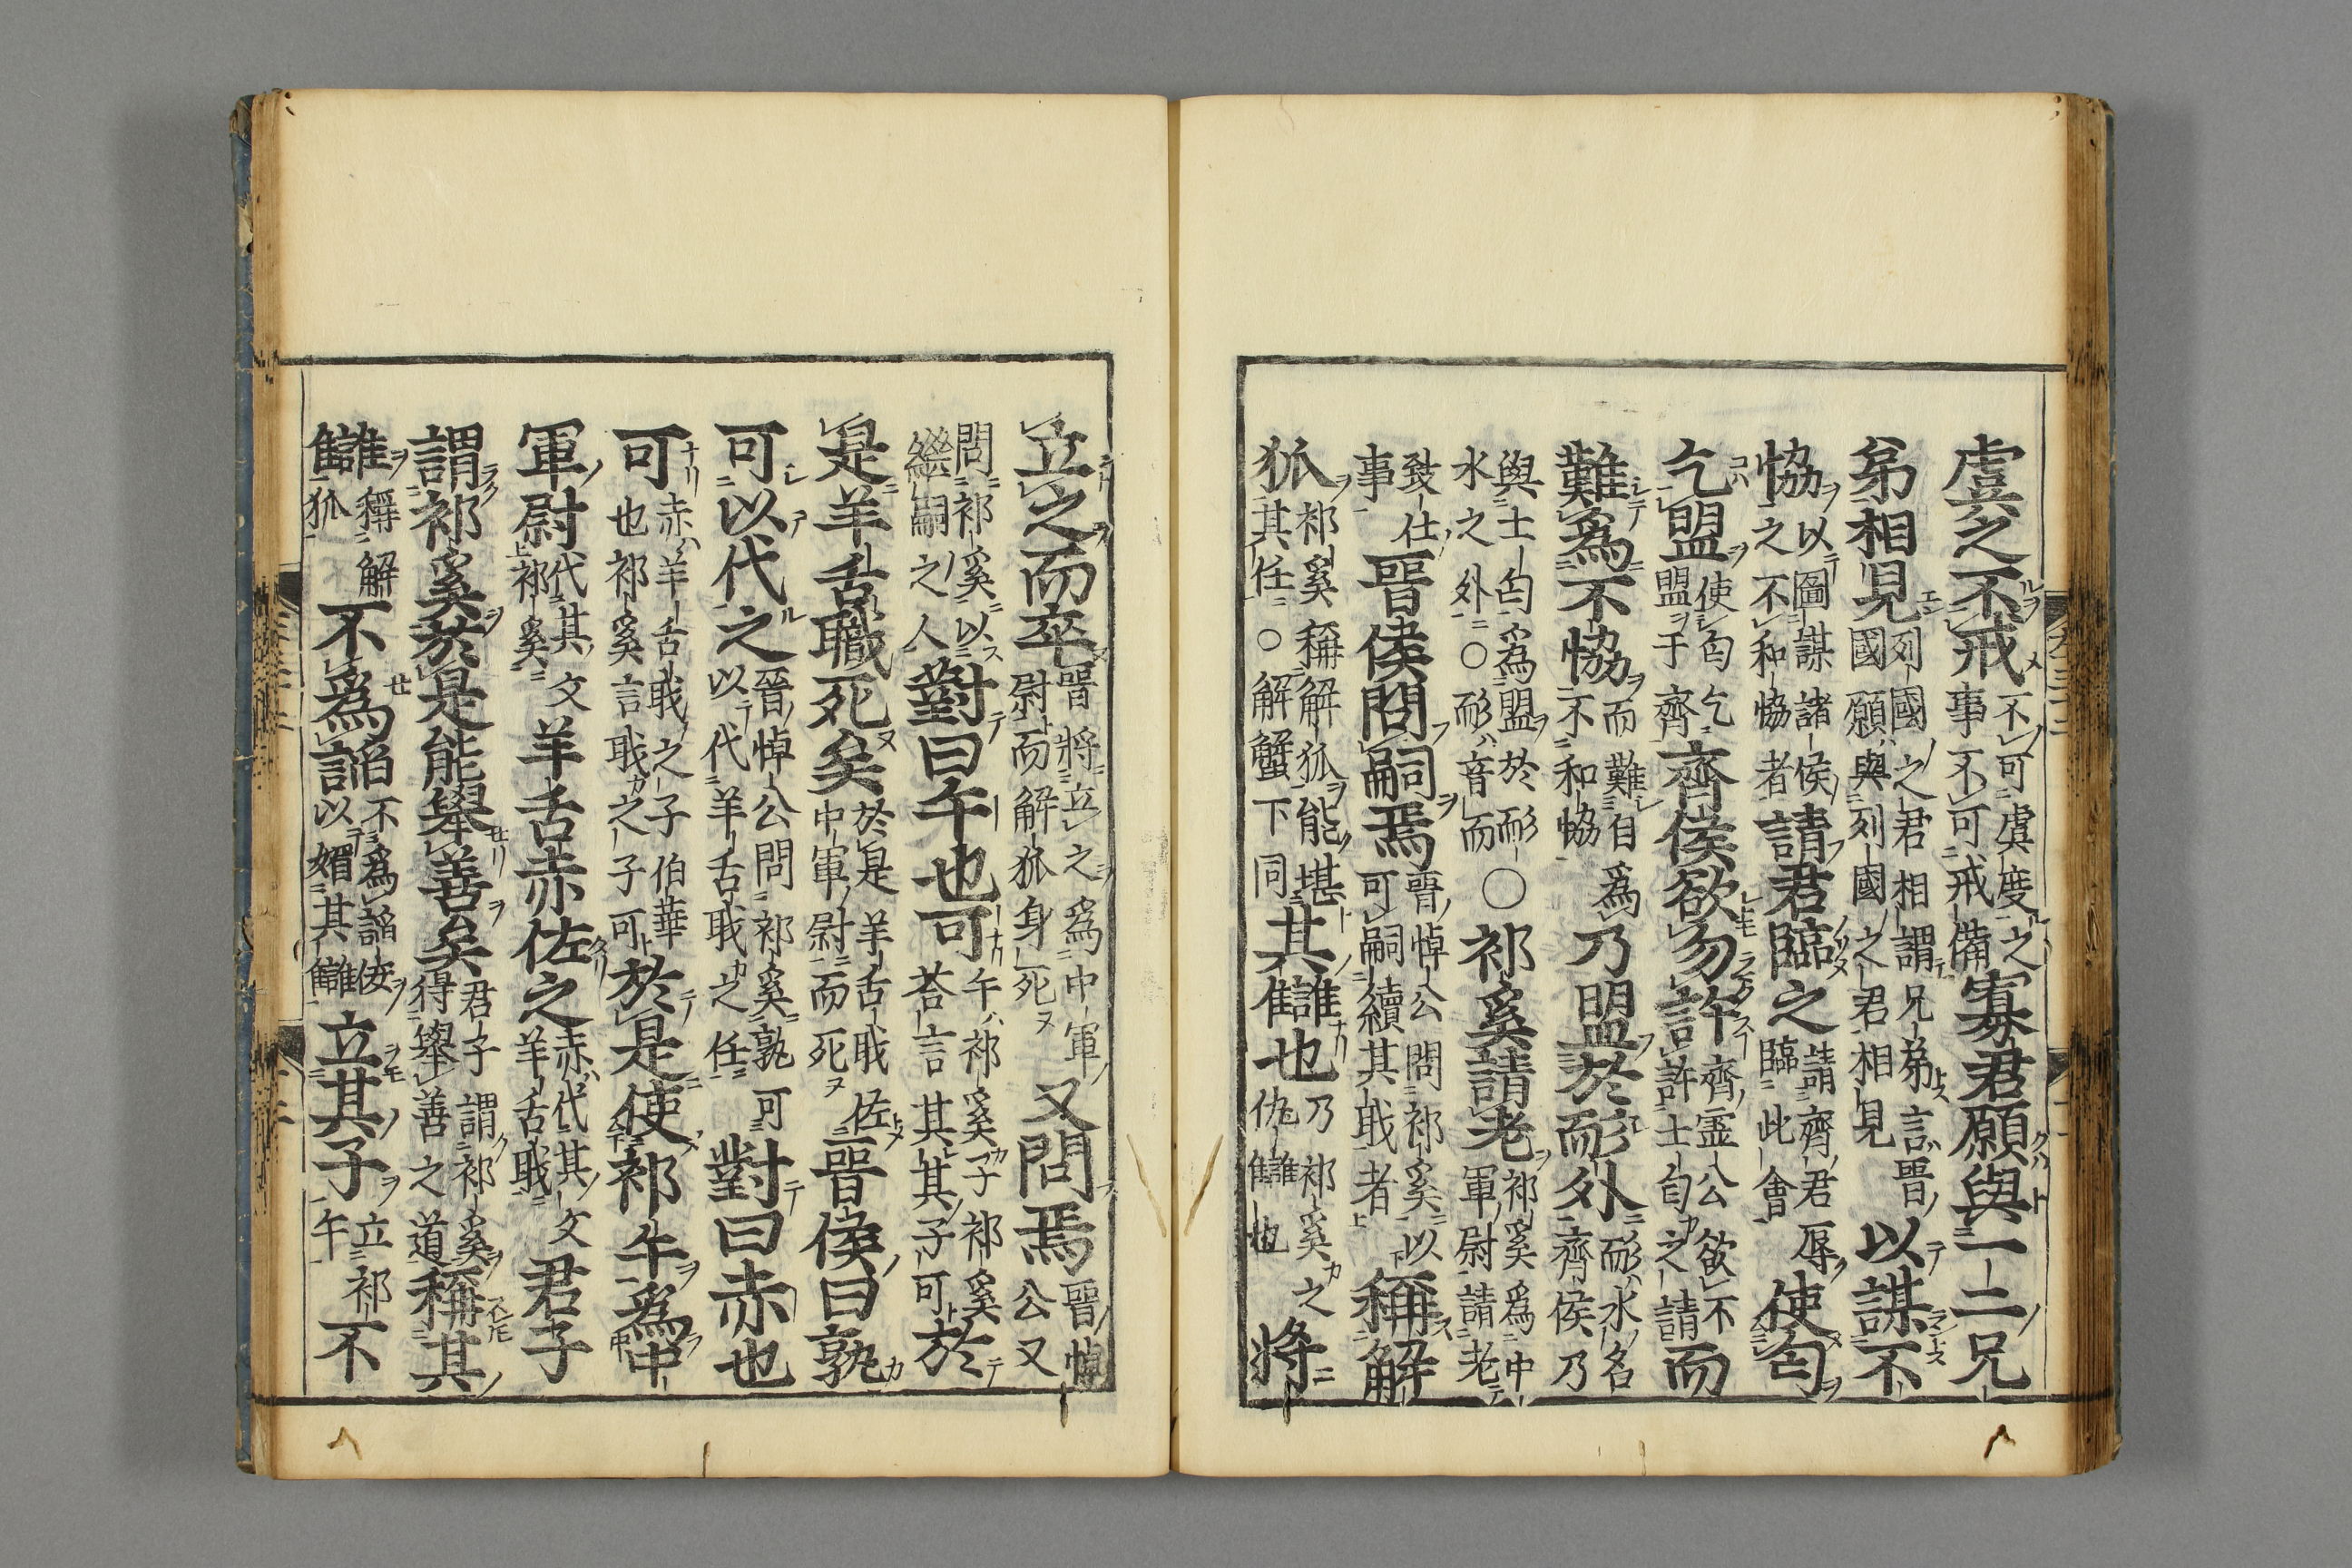 虞之不戒不可虞度之事不可戒備寡君願與一二兄
弟相見列國之君相謂兄弟言晉國願與列國之君相見以謀不
協以圖謀諸侯之不和恊者請君臨之請齊君辱臨此會使匄
乞盟使匄乞盟于齊齊侯欲勿許齊靈公欲不許士匄之請而
難爲不恊而難自爲不和恊乃盟於耏外耏水名齊侯乃
與士匄爲盟於耏水之外○耏音而○祁奚請老祁奚爲中軍尉請老
致仕事晉侯問嗣焉晉悼公問祁奚以可嗣續其職者稱解
狐祁奚稱解狐能堪其任○解蟹下同其讎也乃祁奚之仇讎也將
立之而卒晉將立之爲中軍尉而解狐身死又問焉晉悼公又
問祁奚以繼嗣之人對曰午也可午祁奚子祁奚荅言其其子可於
是羊舌職死矣於是羊舌職佐中軍尉而死晉侯曰孰
可以代之晉悼公問祁奚孰可以代羊舌職之任對曰赤也
可赤羊舌職之子伯華也祁奚言職之子可於是使祁午爲中
軍尉代其父祁奚羊舌赤佐之赤代其父羊舌職君子
謂祁奚於是能舉善矣君子謂祁奚得舉善之道稱其
讎稱解狐不爲謟不爲謟佞以媚其讎立其子立祁午不